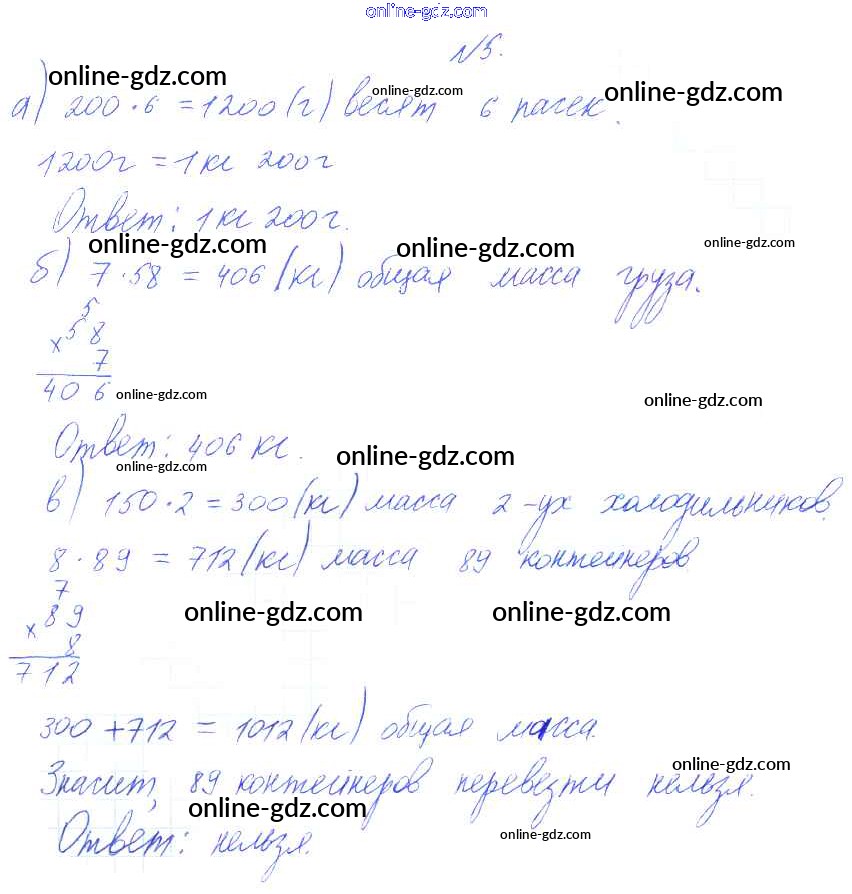 online-gdz.com
№5.
online-gdz.com online-gdz.com online-gdz.com
а) 200·6 = 1200 (г) весят 6 пачек.
1200г = 1 кг 200г
Ответ: 1 кг 200г.
online-gdz.com online-gdz.com online-gdz.com
б) 7·58 = 406 (кг) общая масса груза.
5
× 58
7
406
online-gdz.com online-gdz.com
Ответ: 406 кг.
online-gdz.com online-gdz.com
в) 150·2 = 300 (кг) масса 2-ух холодильников.
8·89 = 712 (кг) масса 89 контейнеров
7
× 89
8
712
online-gdz.com online-gdz.com
300 + 712 = 1012 (кг) общая масса.
online-gdz.com
Значит, 89 контейнеров перевезти нельзя.
online-gdz.com online-gdz.com
Ответ: нельзя.